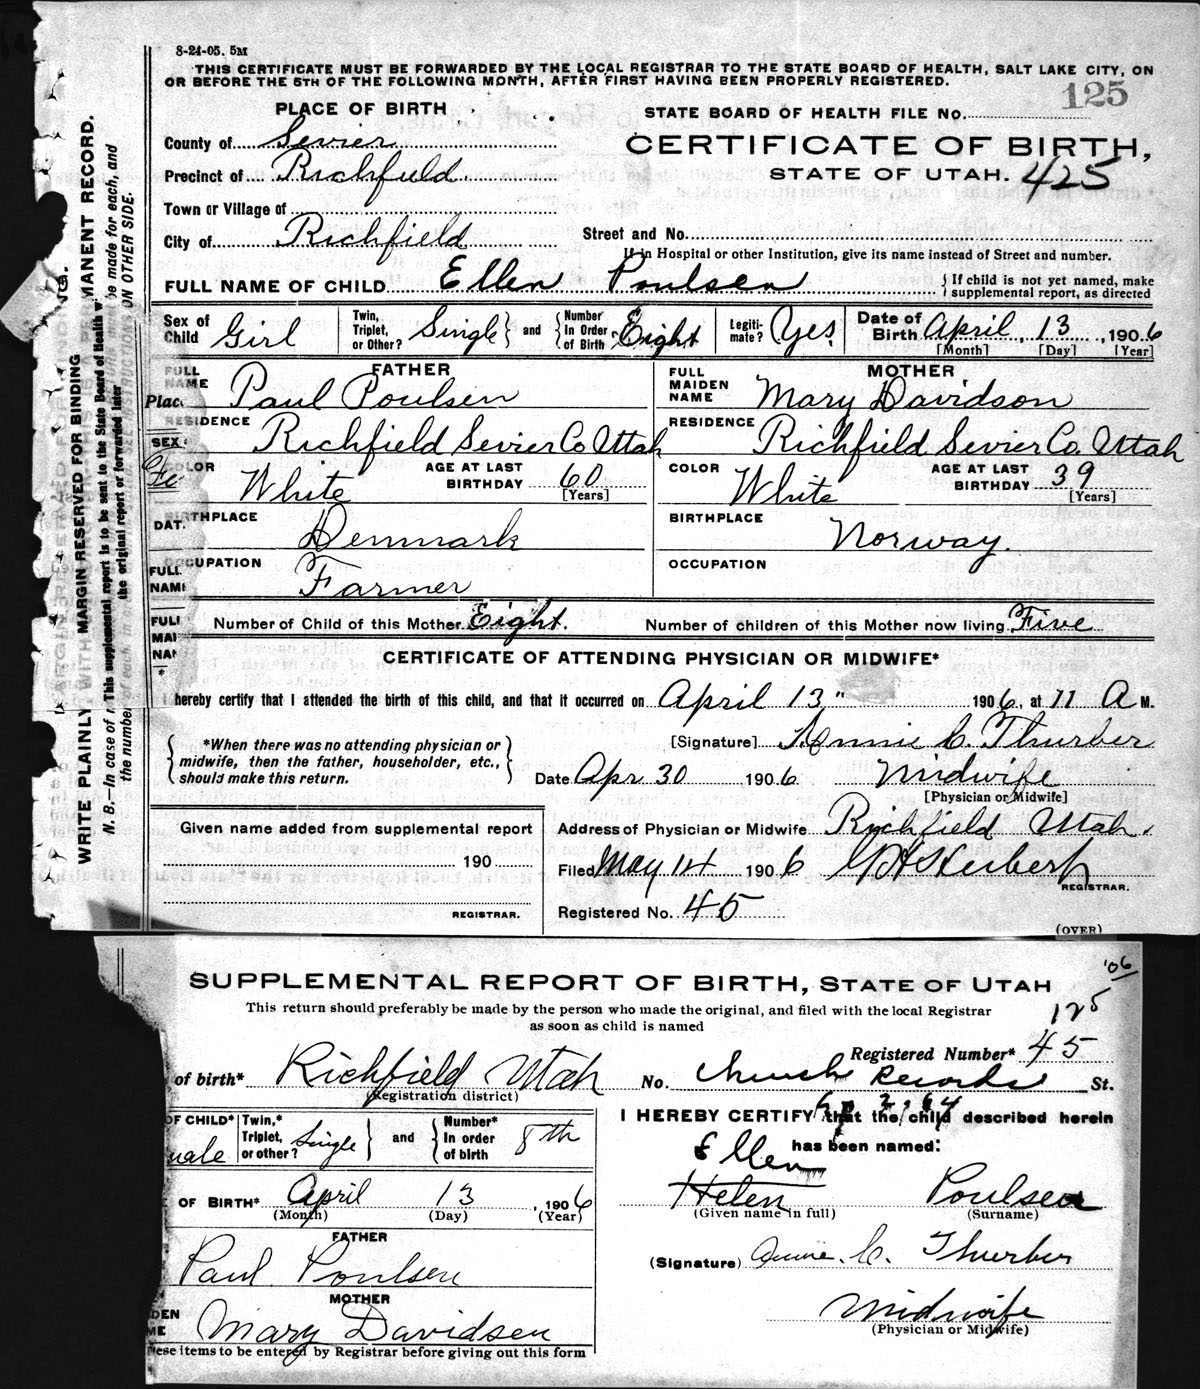 8-24-05. 5M
THIS CERTIFICATE MUST BE FORWARDED BY THE LOCAL REGISTRAR TO THE STATE BOARD OF HEALTH, SALT LAKE CITY, ON
OR BEFORE THE 5TH OF THE FOLLOWING MONTH, AFTER FIRST HAVING BEEN PROPERLY REGISTERED.
125
PLACE OF BIRTH
STATE BOARD OF HEALTH FILE NO.
County of Sevier
CERTIFICATE OF BIRTH,
Precinct of Richfield.
STATE OF UTAH. 425
Town or Village of
City of Richfield
Street and No.
If in Hospital or other Institution, give its name instead of Street and number.
FULL NAME OF CHILD Ellen Poulsen
If child is not yet named, make
supplemental report, as directed
Sex of Child Girl
Twin, Triplet, or Other? Single and Number In Order of Birth Eight
Legitimate? Yes
Date of Birth April 13, 1906
[Month] [Day] [Year]
FATHER
FULL NAME Paul Poulsen
RESIDENCE Richfield Sevier Co Utah
COLOR White AGE AT LAST BIRTHDAY 60
[Years]
BIRTHPLACE Denmark
OCCUPATION Farmer
MOTHER
FULL MAIDEN NAME Mary Davidson
RESIDENCE Richfield Sevier Co. Utah
COLOR White AGE AT LAST BIRTHDAY 39
[Years]
BIRTHPLACE Norway.
OCCUPATION
Number of Child of this Mother Eight. Number of children of this Mother now living Five
CERTIFICATE OF ATTENDING PHYSICIAN OR MIDWIFE*
I hereby certify that I attended the birth of this child, and that it occurred on April 13" 1906, at 11 A M.
*When there was no attending physician or
midwife, then the father, householder, etc.,
should make this return.
[Signature] Annie C. Thurber
Date Apr 30 1906 Midwife
[Physician or Midwife]
Given name added from supplemental report
190
REGISTRAR.
Address of Physician or Midwife Richfield Utah.
Filed May 14 1906
REGISTRAR.
Registered No. 45
(OVER)
WRITE PLAINLY WITH MARGIN RESERVED FOR BINDING MANENT RECORD.
N. B.—In case of
This supplemental report is to be sent to the State Board of Health
the original report or forwarded later
be made for each, and
the number
ON OTHER SIDE.
Place
SEX
Fe
DAT
FULL
NAME
FULL
MAI
NAM
*
SUPPLEMENTAL REPORT OF BIRTH, STATE OF UTAH
'06
This return should preferably be made by the person who made the original, and filed with the local Registrar
as soon as child is named
125
Registered Number* 45
of birth* Richfield Utah No. Church Records St.
(Registration district)
OF CHILD* male
Twin,* Triplet, or other? Single and Number* In order of birth 8th
OF BIRTH* April 13, 1906
(Month) (Day) (Year)
FATHER
Paul Poulsen
MOTHER
Mary Davidsen
These items to be entered by Registrar before giving out this form
I HEREBY CERTIFY that the child described herein
has been named:
Ellen
Helen Poulsen
(Given name in full) (Surname)
(Signature) Annie. C. Thurber
Midwife
(Physician or Midwife)